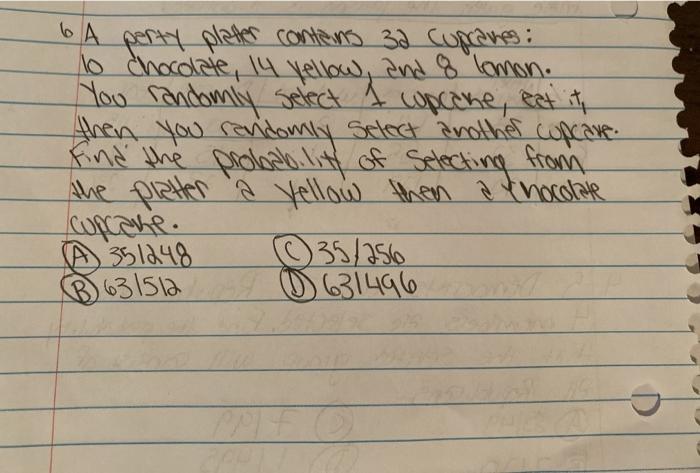 6 A party platter contains 32 cupcakes:
10 chocolate, 14 yellow, and 8 lemon.
You randomly select 1 cupcake, eat it,
then you randomly select another cupcake.
Find the probability of selecting from
the platter a yellow then a chocolate
cupcake.
(A) 35/248 (C) 35/256
(B) 63/512 (D) 63/496